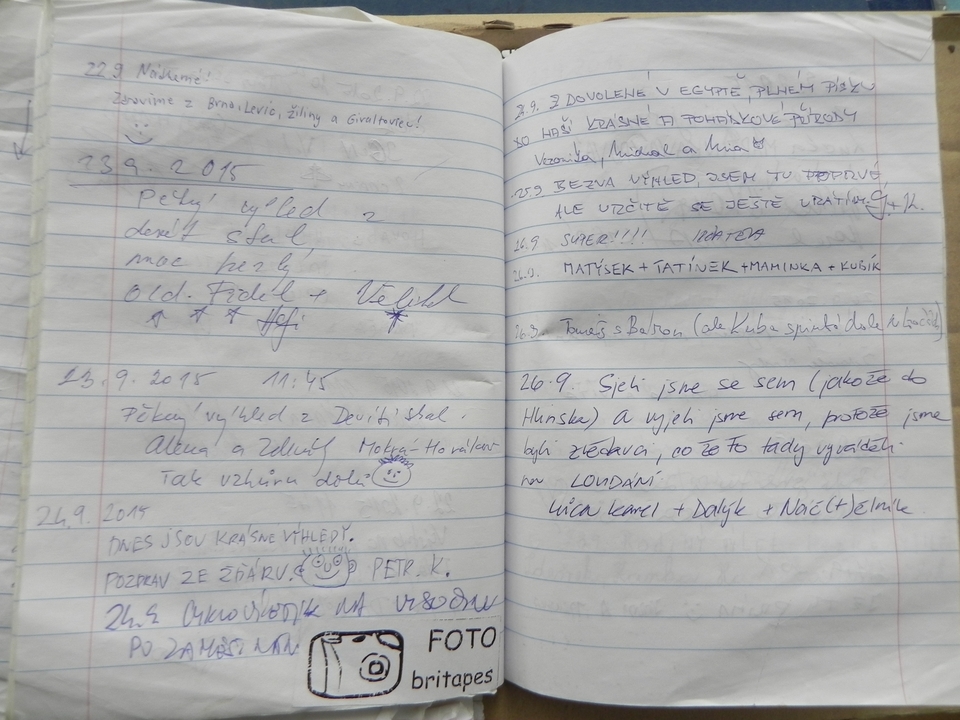 22.9 Nádherné!
Zdravíme z Brna, Levic, Žiliny a Giraltoviec!
23.9.2015
Pěkný výhled z
devíti skal,
moc hezký
old. Fidél +
23.9.2015 11:45
Pěkný výhled z Devíti skal.
Alena a Zdeněk
Tak vzhůru dolů
24.9. 2015
DNES JSOU KRÁSNÉ VÝHLEDY.
POZDRAV ZE ŽĎÁRU. PETR. K.
24.9 NA VYSOČINU
PO ZAMĚSTNÁN
FOTO
britapes
Z DOVOLENÉ V EGYPTĚ, PLNÉM PÍSKU
DO NAŠÍ KRÁSNÉ A POHÁDKOVÉ PŘÍRODY
Veronika, Michal a Nina
25.9 BEZVA VÝHLED, JSEM TU POPRVÉ,
ALE URČITĚ SE JEŠTĚ VRÁTÍM. + K.
26.9 SUPER!!!!
26.9. MATÝSEK + TATÍNEK + MAMINKA + KUBÍK
26.9. Tomáš s Barou (ale Kuba dole
26.9. Sjeli jsme se sem (jakože do
Hlinska) a vyjeli jsme sem, protože jsme
byli zvědaví, co že to tady vyvádělí
na LOUDÁNÍ.
Karel + Dalýk + Náč(t)elník